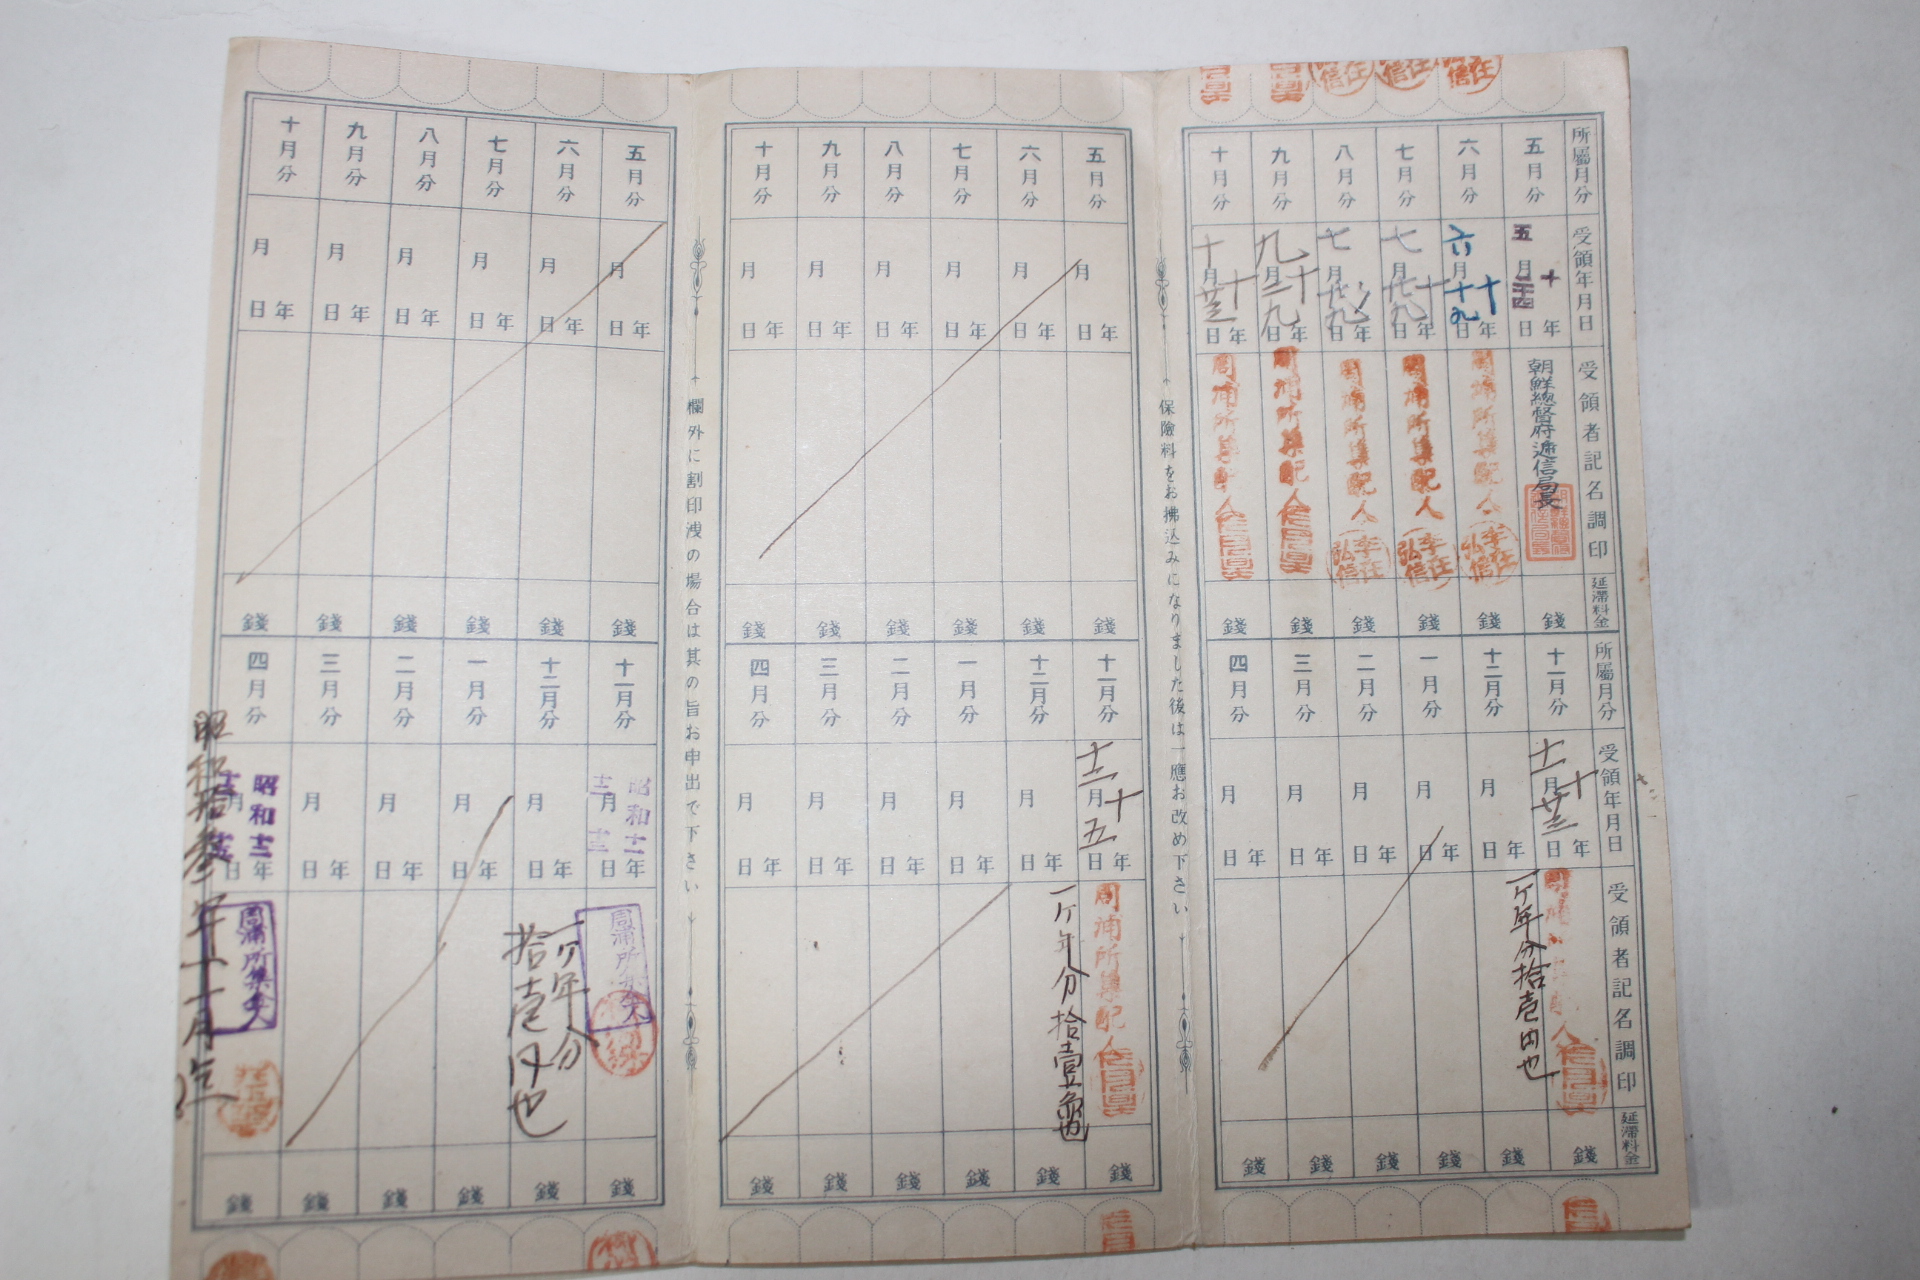 所屬月分
五月分
六月分
七月分
八月分
九月分
十月分
受領年月日
五月廿四日 十年
六月十九日 十年
七月廿九日 十年
七月廿九日 年
九月十九日 十年
十月廿三日 十年
受領者記名調印
朝鮮總督府遞信局長
周浦所集配人
周浦所集配人
周浦所集配人
周浦所集配人
周浦所集配人
李任弘信
李任弘信
李任弘信
延滯料金
錢
錢
錢
錢
錢
錢
所屬月分
十一月分
十二月分
一月分
二月分
三月分
四月分
受領年月日
十一月廿三日 十年
月 日 年
月 日 年
月 日 年
月 日 年
月 日 年
受領者記名調印
一ケ年分拾壱円也
延滯料金
錢
錢
錢
錢
錢
錢
保險料をお拂込みになりました後は一應お改め下さい
五月分
六月分
七月分
八月分
九月分
十月分
月 日 年
月 日 年
月 日 年
月 日 年
月 日 年
月 日 年
錢
錢
錢
錢
錢
錢
十一月分
十二月分
一月分
二月分
三月分
四月分
十二月五日 十年
月 日 年
月 日 年
月 日 年
月 日 年
月 日 年
周浦所集配人
一ケ年分拾壹
錢
錢
錢
錢
錢
錢
欄外に割印洩の場合は其の旨お申出で下さい
五月分
六月分
七月分
八月分
九月分
十月分
月 日 年
月 日 年
月 日 年
月 日 年
月 日 年
月 日 年
錢
錢
錢
錢
錢
錢
十一月分
十二月分
一月分
二月分
三月分
四月分
昭和十二年
月 日 年
月 日 年
月 日 年
月 日 年
昭和十三年
周浦所集
一ケ年分
拾壱円也
周浦所集
昭和拾参年十一月迄
錢
錢
錢
錢
錢
錢